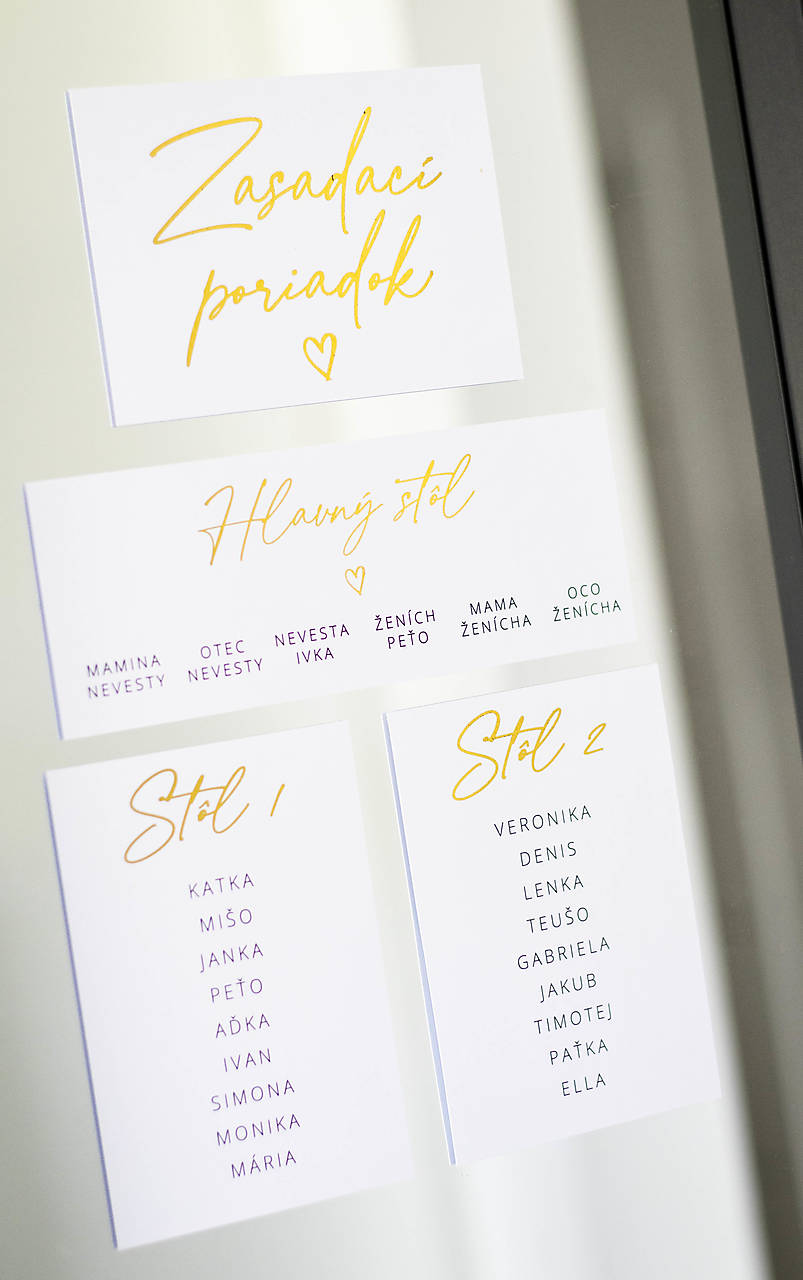 Zasadací
poriadok
Hlavný stôl
MAMINA
NEVESTY
OTEC
NEVESTY
NEVESTA
IVKA
ŽENÍCH
PEŤO
MAMA
ŽENÍCHA
OCO
ŽENÍCHA
Stôl 1
KATKA
MIŠO
JANKA
PEŤO
AĎKA
IVAN
SIMONA
MONIKA
MÁRIA
Stôl 2
VERONIKA
DENIS
LENKA
TEUŠO
GABRIELA
JAKUB
TIMOTEJ
PAŤKA
ELLA